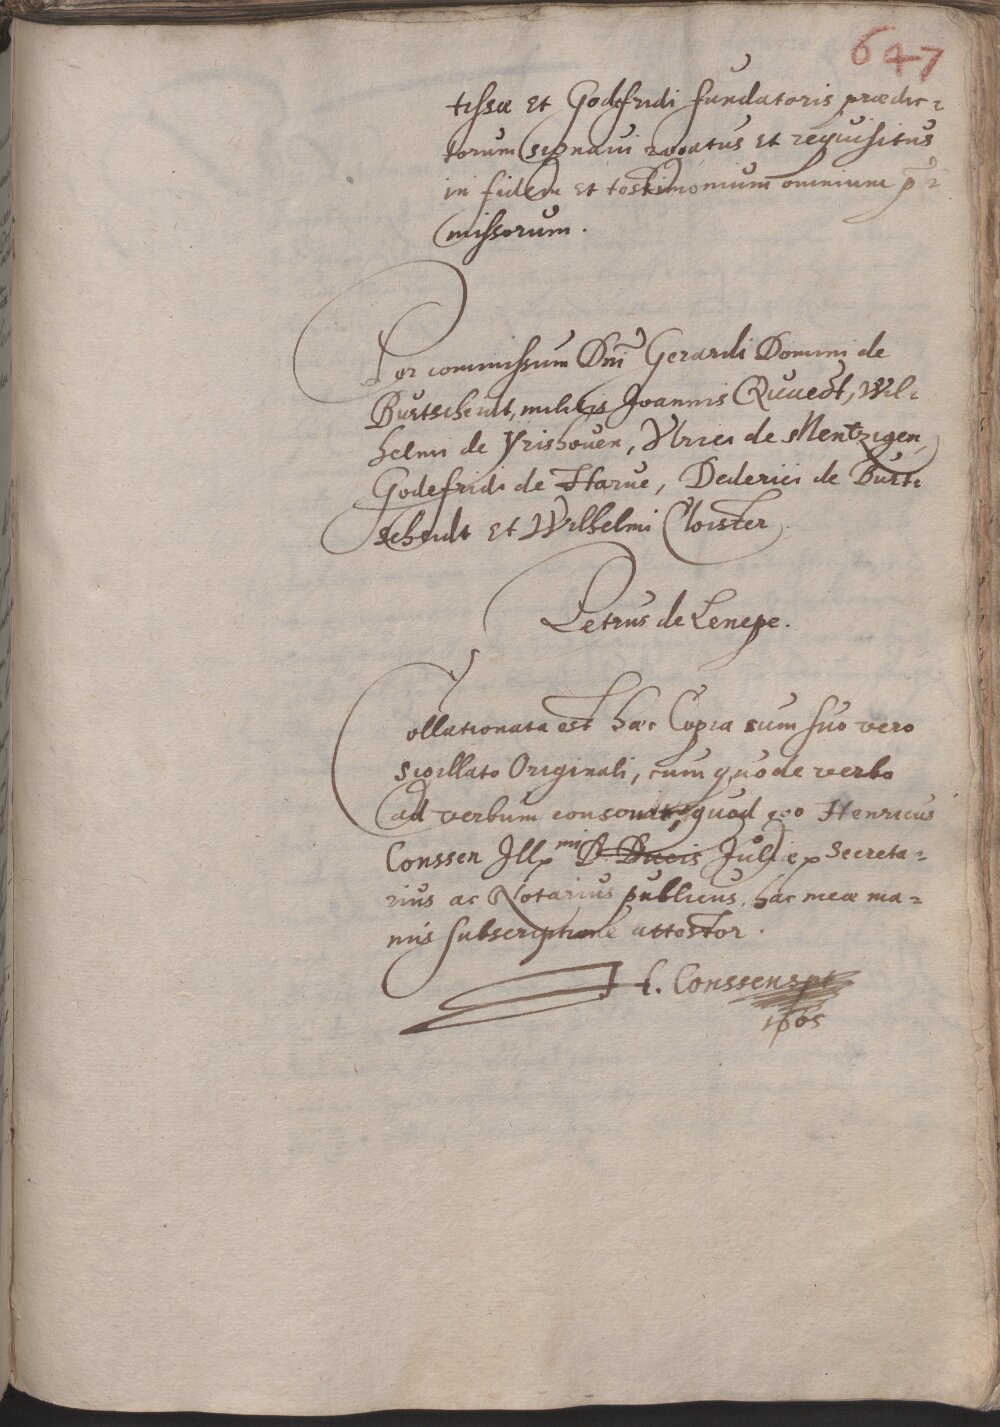 647
tissæ et Godefridi fundatoris prædic=
torum signavi rogatus et requisitus
in fidem et testimonium omnium p̃=
missorum.
Per commissum Dni Gerardi Domini de
Burtscheidt, militis Joannis Quaedt, Wil=
helmi de Vrishouen, Vlrici de Mentzigen,
Godefridi de Harue, Dederici de Burt=
scheidt et Wilhelmi Cloister
Petrus de Lenepe.
Collationata est hæc Copia cum suo vero
sigillato Originali, cumque de verbo
ad verbum consonat, quod ego Henricus
Conssen Ill.mi D Ducis Jul. Secreta=
rius ac Notarius publicus, hac meæ ma=
nus subscriptione attestor.
H. Conssen